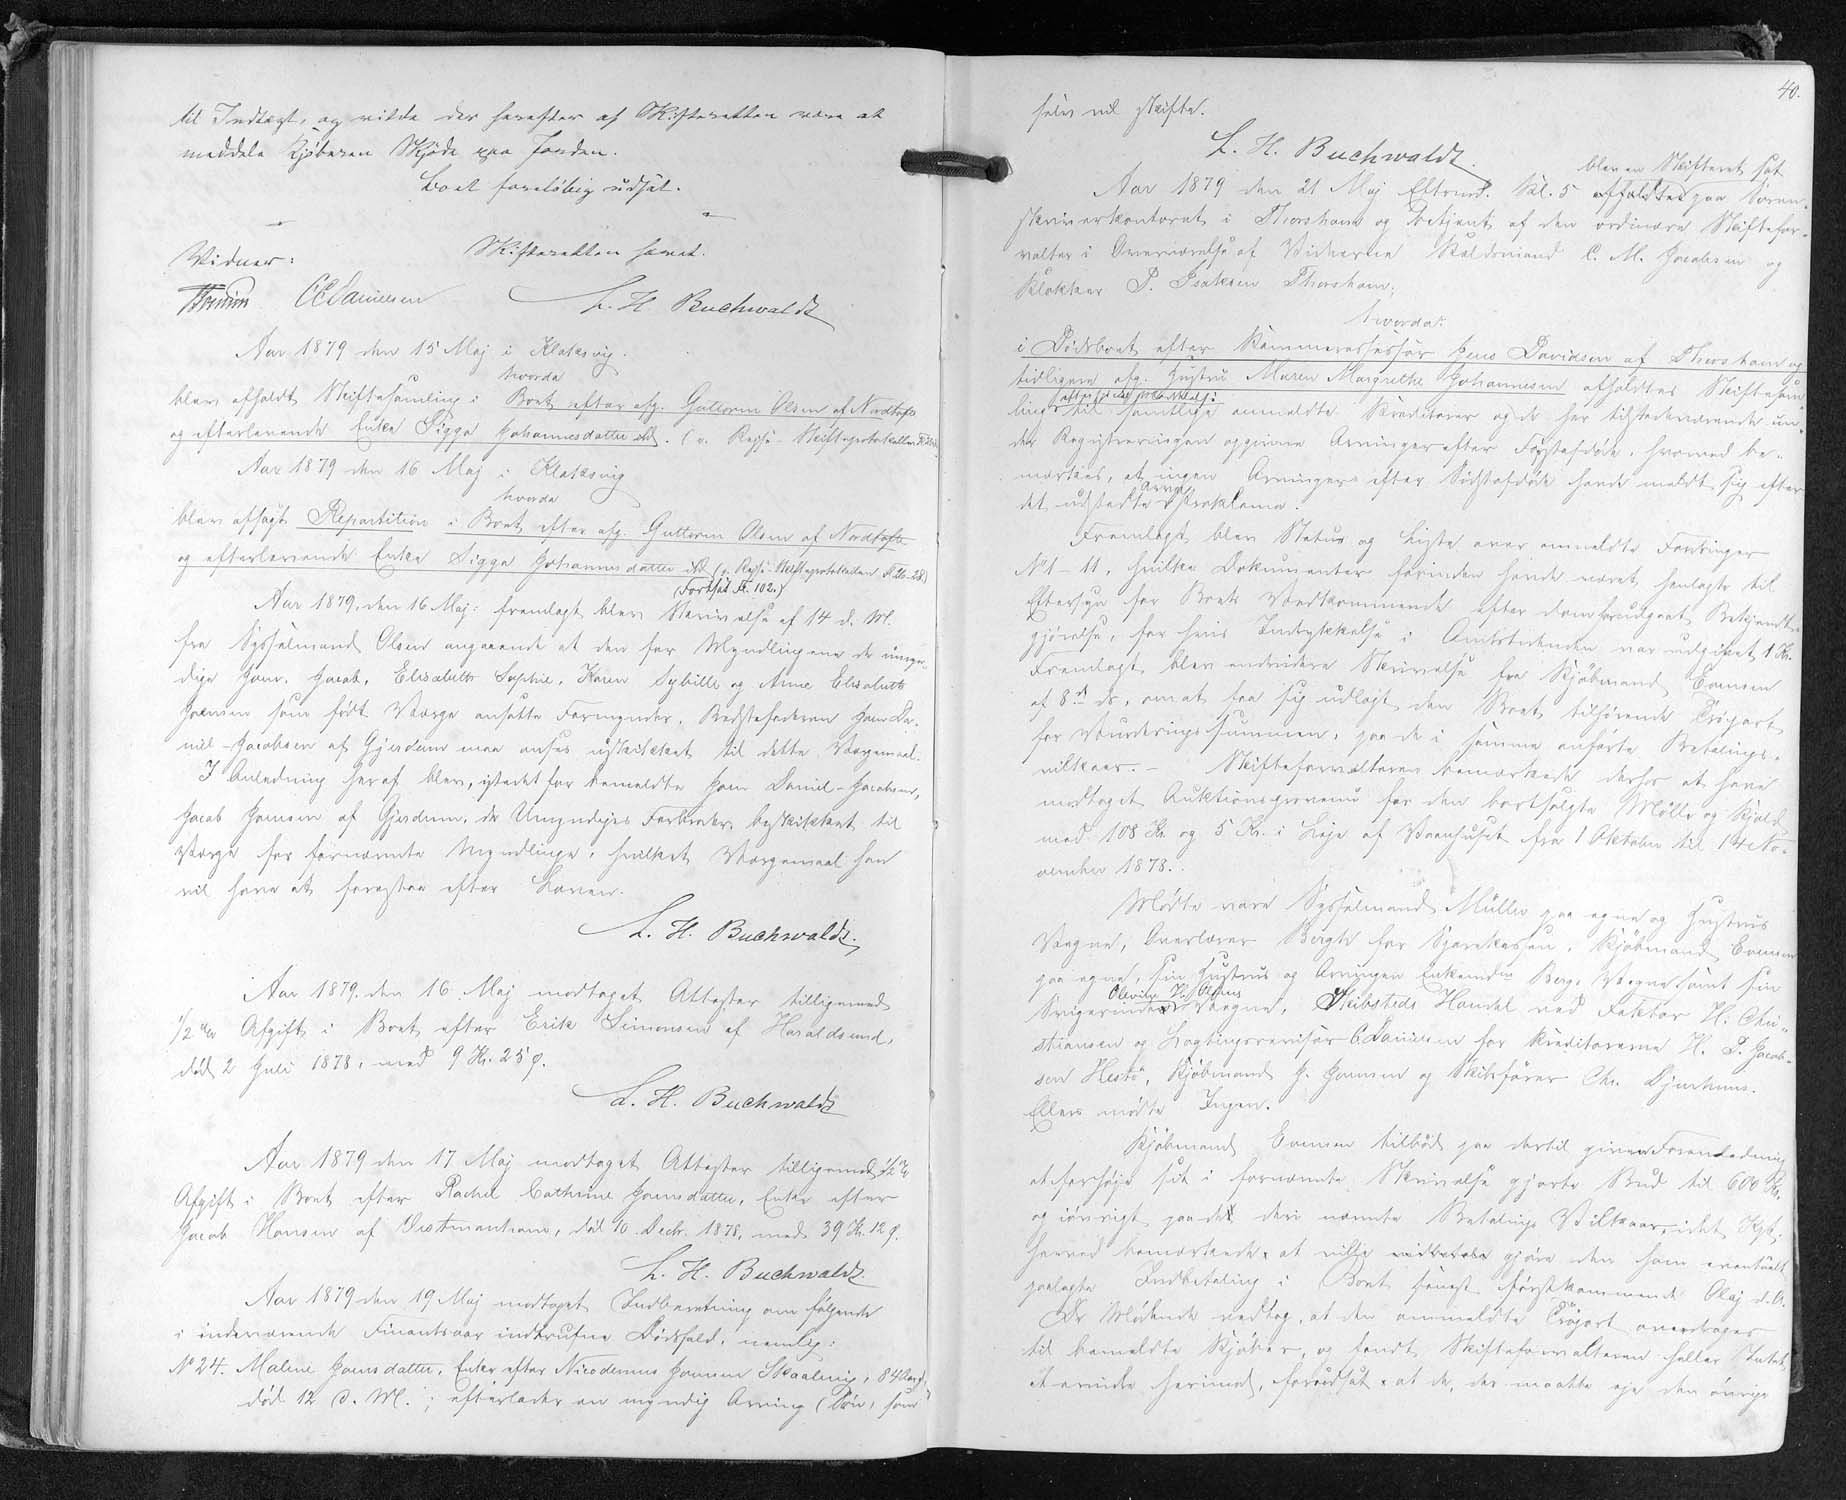 til Indtægt, og vilde der herefter af Skifteretten være at
meddele Kjøberen Skjøde paa Jorden.
Boet foreløbig udsat.
Skifteretten hævet.
Vidner:
C C Danielsen L. H. Buchwaldt
Aar 1879 den 15 Maj i Klaksvig
hvorda
blev afholdt Skiftesamling i Boet efter afg. Guttorm Olsen af Nordtofte
og efterlevende Enke Sigga Johannesdatter sdst. (v. Rejse-Skifteprotokollen
Aar 1879 den 16 Maj i Klaksvig
hvorda
blev afsagt Repartition i Boet efter afg. Guttorm Olsen af Nordtofte
og efterlevende Enke Sigga Johannesdatter sdst. (v. Rejse-Skifteprotokollen Fl. 26-28)
(Fortsat Fl. 102.)
Aar 1879, den 16 Maj: fremlagt blev Skrivelse af 14 d. M.
fra Sysselmand Olsen angaaende at den for Myndlingerne de umyn-
dige Joen, Jacob, Elisabeth Sophie, Karen Sybille og Anne Elisabeth
Joensen som født Værge ansatte Formynder, Bedstefaderen Joen Da-
niel Jacobsen af Gjerdum maa anses uskikket til dette Værgemaal.
I Anledning heraf blev, istedet for bemeldte Joen Daniel Jacobsen,
Jacob Joensen af Gjerdum, de Umyndiges Farbroder, beskikket til
Værge for fornævnte Myndlinge, hvilket Værgemaal han
vil have at forestaa efter Loven.
L. H. Buchwaldt.
Aar 1879, den 16 Maj modtaget Attester tilligemed
1/2 % Afgift i Boet efter Erik Simonsen af Haraldsund,
død 2 Juli 1878, med 9 Kr. 25 Ø.
L. H. Buchwaldt
Aar 1879 den 17 Maj modtaget Attester tilligemed 1/2 %
Afgift i Boet efter Rachel Cathrine Joensdatter, Enke efter
Jacob Hansen af Vestmanhavn, død 10 Decbr. 1878, med 39 Kr. 12 Ø.
L. H. Buchwaldt
Aar 1879 den 19 Maj modtaget Indberetning om følgende
i indeværende Finantsaar indtrufne Dødsfald, nemlig:
No 24. Malene Joensdatter, Enke efter Nicodemus Joensen Skaaling, 84 Aar gl.,
død 12 d. M.; efterlader en myndig Arving (Søn, som
40.
selv vil skifte.
L. H. Buchwaldt.
blev en Skifteret sat
Aar 1879 den 21 Maj Eftermd. Kl. 5 afholdtes paa Soren-
skriverkontoret i Thorshavn og betjent af den ordinære Skiftefor-
valter i Overværelse af Vidnerne Skoldsmand C. M. Jacobsen og
Klokker P. Isaksen Thorshavn;
hvorda:
i Dødsboet efter Kammerassessor Jens Davidsen af Thorshavn og
tidligere afg. Hustru Maren Margrethe Johannesen afholdtes Skiftesam-
ling til samtlige anmeldte Kreditorer og de her tilstedeværende un-
der Registreringen opgivne Arvinger efter Førstafdøde, hvorved be-
mærkes, at ingen Arvinger efter Sidstafdøde havde meldt sig efter
det udstedte Proklama.
Fremlagt blev Status og Liste over anmeldte Fordringer
No 1-11, hvilke Dokumenter forinden havde været henlagte til
Eftersyn for Boets Vedkommende efter derom forudgaaet Bekjendt-
gjørelse, for hvis Indrykkelse i Amtstidenden var udgivet 1 Kr.
Fremlagt blev endvidere Skrivelse fra Kjøbmand Evensen
af 8de ds, om at faa sig udlagt den Boet tilhørende Part
for Vurderingssummen, paa de i samme anførte Betalings-
vilkaar. – Skifteforvalteren bemærkede derhos at have
modtaget Auktionsprovenu for den bortsolgte Mølle og Kjæld
med 108 Kr. og 5 Kr. i Leje af Vaanhuset fra 1 Oktober til 14 No-
vember 1878.
Mødte vare Sysselmand Müller paa egne og Hustrus
Vegne, Overlærer Bergh for Sparekassen, Kjøbmand Evensen
paa egne, sin Hustrus og Arvingen Vegne samt sin
Olevine H. Olsens
Svigerindes Vegne, Skibsteds Handel ved Faktor H. Chri-
stiansen og Lagtingsrevisor C. Danielsen for Kreditorerne H. D. Jacob-
sen Hestø, Kjøbmand J. Joensen og Skibsfører Chr. Djurhuus.
Ellers mødte Ingen.
Kjøbmand Evensen tilbød paa dertil given Foranledning
at forhøje sit i fornævnte Skrivelse gjorte Bud til 600 Kr.
og iøvrigt paa de deri nævnte Betalings Vilkaar, idet Kjøb.
herved bemærkede at ville gjøre den ham eventuelt
paalagte Indbetaling i Boet senest førstkommende Olaj d. A.
De Mødende vedtog, at den anmeldte Part overdrages
til bemeldte Kjøber, og fandt Skifteforvalteren heller Intet
at erindre herimod, forudsat at de, der maatte eje den øvrige